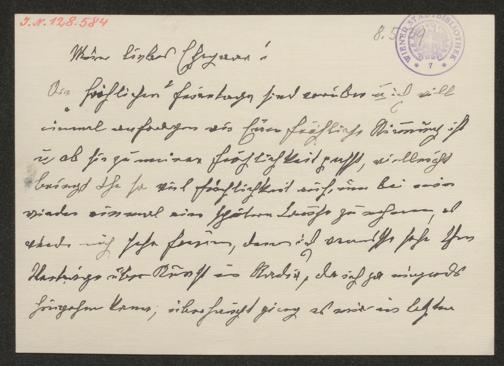 I.N. 128.584
WIENER STADTBIBLIOTHEK
7
Mein liebes Ehepaar!
Die "fröhlichen" Feiertage sind vorüber u. ich will
einmal anfragen wie Eure fröhliche Stimmung ist
u. ob sie zu meiner Fröhlichkeit passt, vielleicht
bringt Ihr so viel Fröhlichkeit auf, um bei mir
wieder einmal eine spätere Jause zu nehmen, es
würde mich sehr freuen, denn ich vermisse sehr Ihre
Vorträge über Kunst im Radio, da ich ja nirgends
hingehen kann, überhaupt ging es mir im letzten